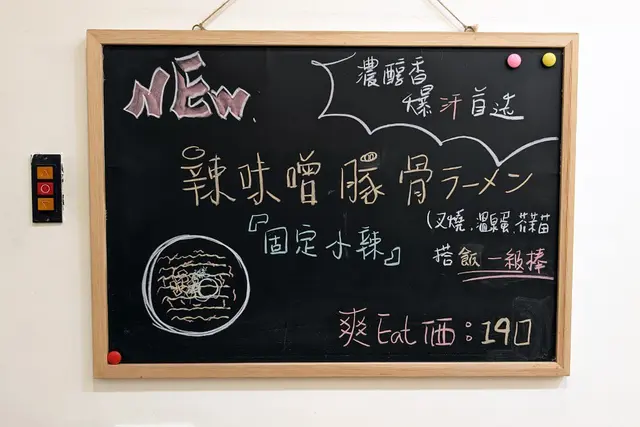 NEW.
濃醇香
爆汗首選
辣味噌豚骨ラーメン
(叉燒.溫泉蛋.芥菜苗
『固定小辣』
搭飯一級棒
爽Eat価:190